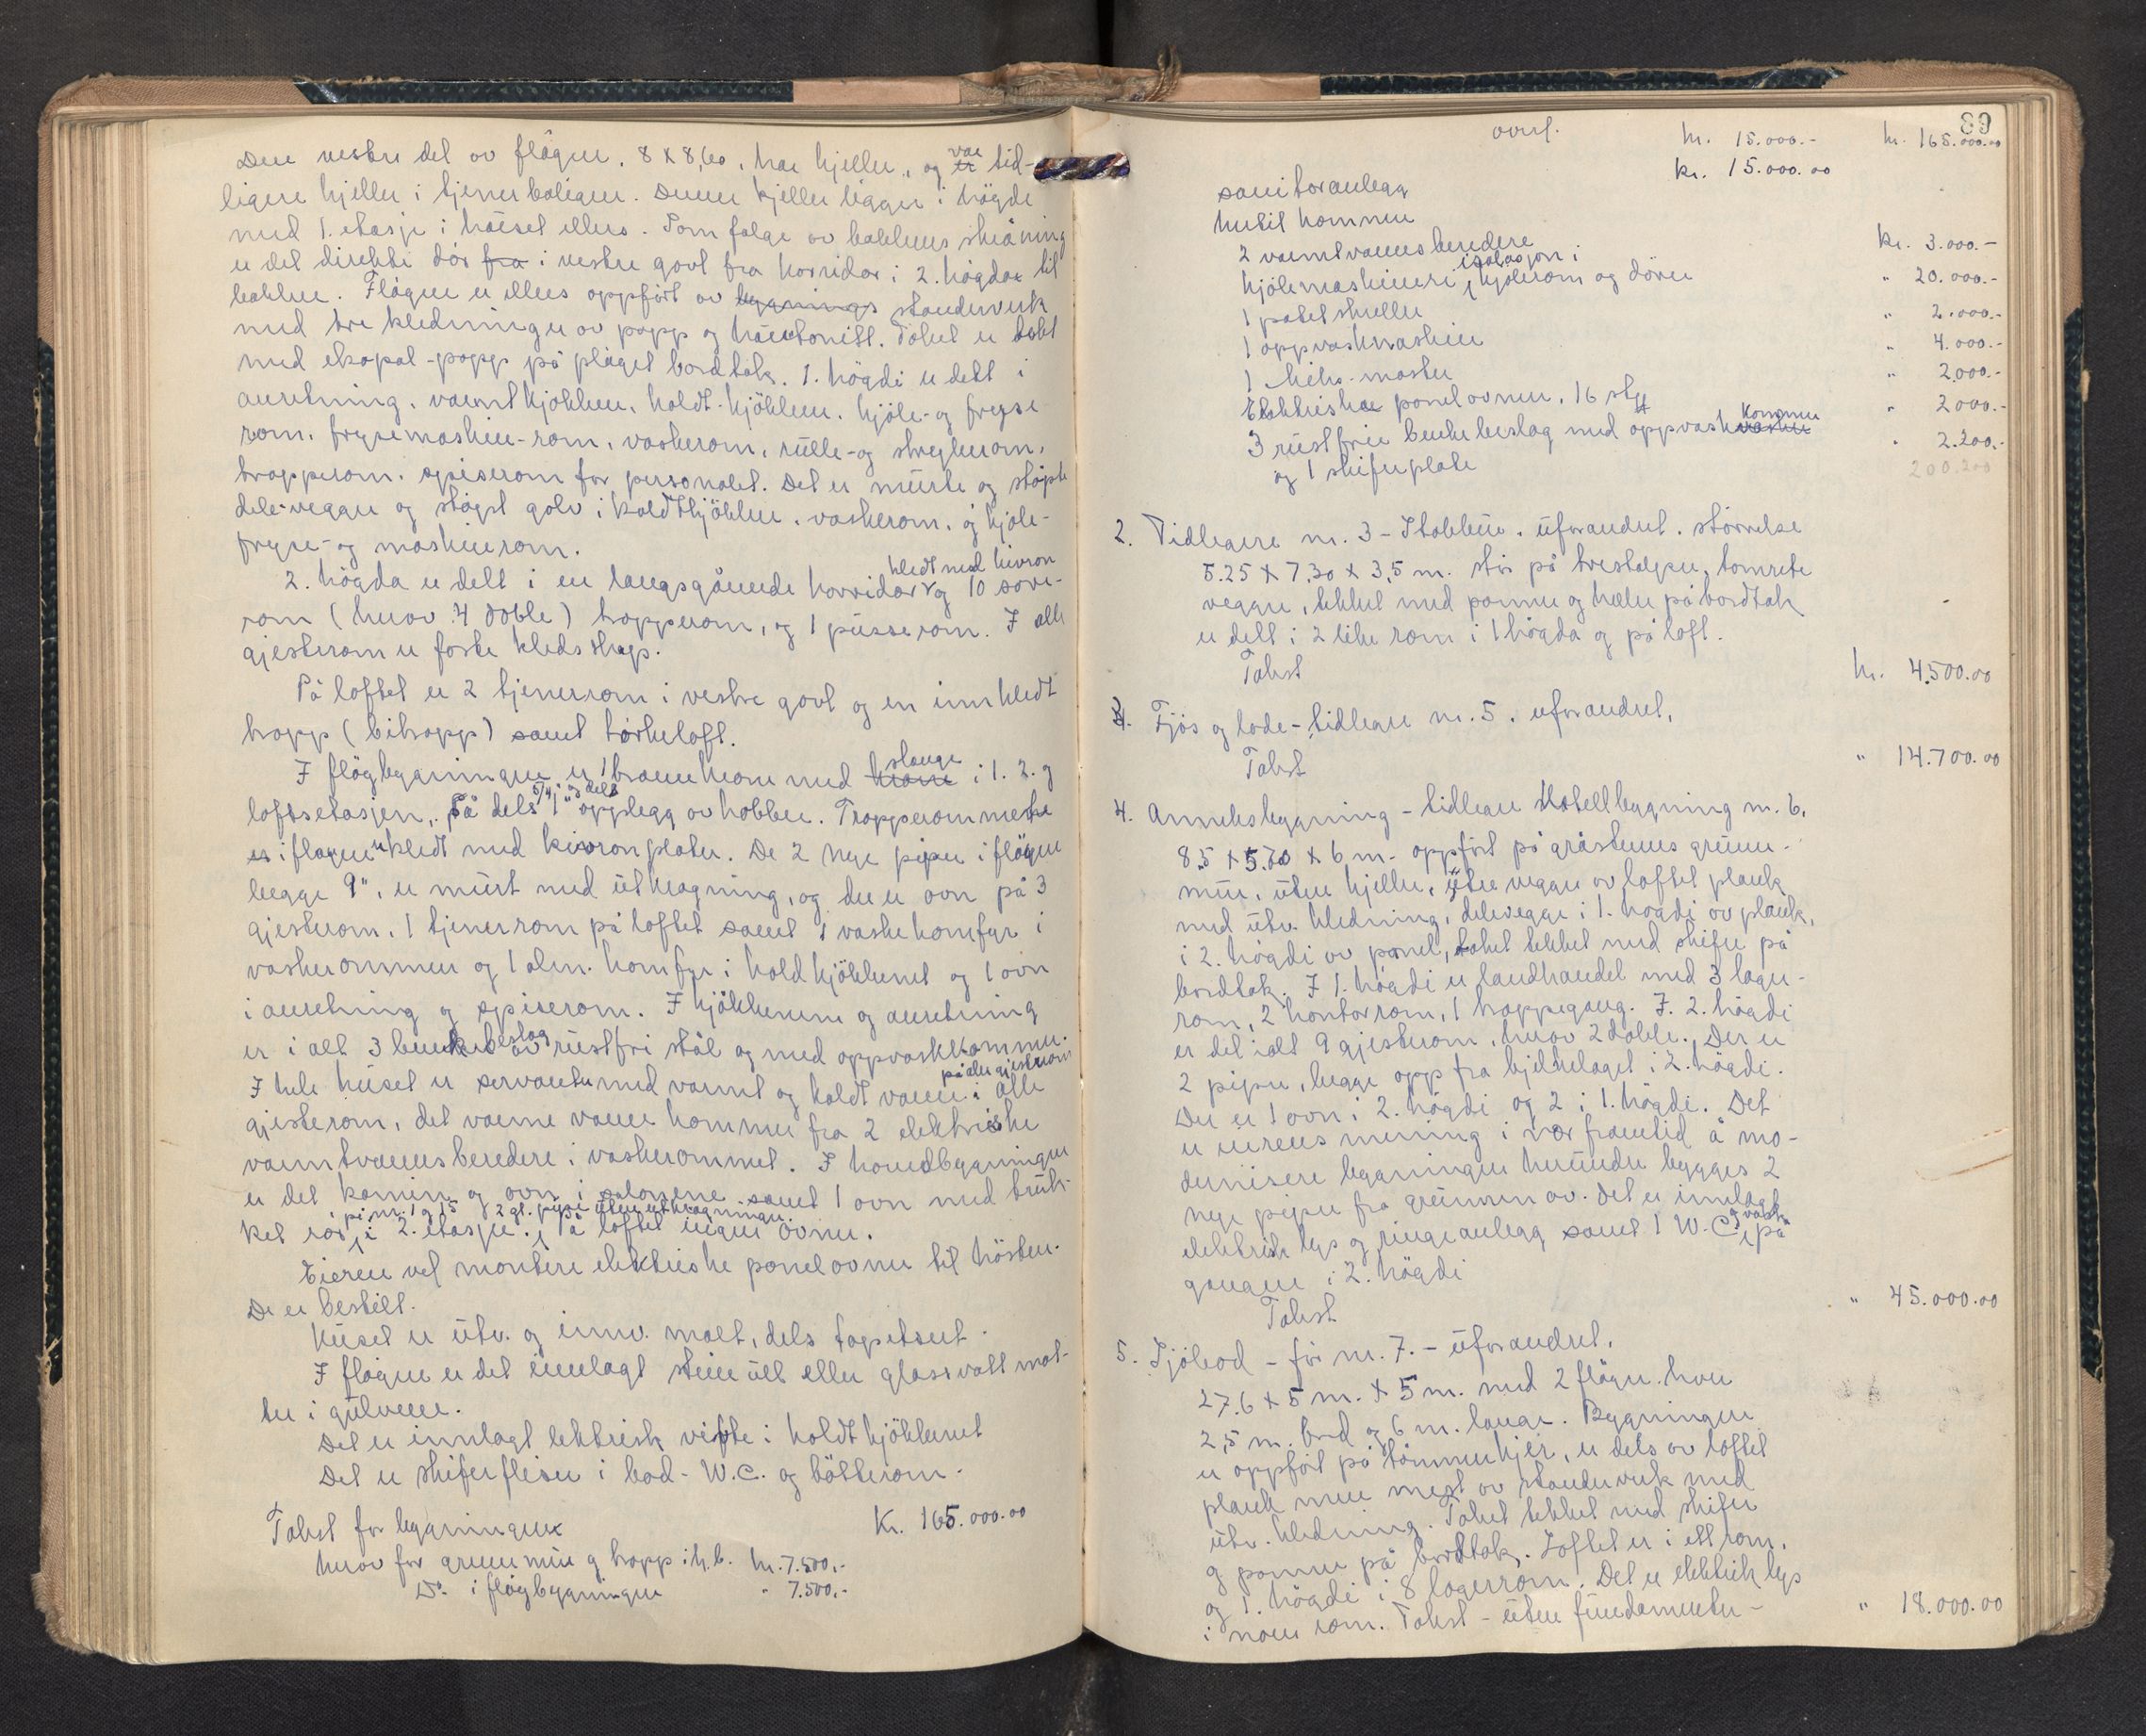 Den vestre del av fløgen, 8 x 8,60, har kjeller, og var er tid-
ligere kjeller i tjenerboligen. Denne kjeller ligger i høgde
med 1. etasje i huset ellers. Som følge av bakkens skråning
er det direkte dør fra i vestre gavl fra korridor i 2. høgda til
bakken. Fløgen er ellers oppført av bygnings stenderverk
med tre kledninger av papp og huntonitt. Taket er tekt
med ekapal-papp på pløgd bordtak. 1. høgdi er delt i
anretning, varmtkjøkken, koldt-kjøkken, kjøle- og fryse
rom, frysemaskin-rom, vaskerom, rulle- og strykerom,
trapperom, spiserom for personalet. Det er murte og støpte
dele-vegger og støpt golv i koldtkjøkken, vaskerom, og kjøle-
fryse- og maskinrom.
2. høgda er delt i en langsgående korridor kledt med kivron og 10 sove-
rom (herav 4 doble) trapperom, og 1 pusserom. I alle
gjesterom er faste kledskap.
På loftet er 2 tjenerrom i vestre gavl og en innkledt
trapp (bitrapp) samt tørkeloft.
I fløgbygningen er 1 brannkran med krane slange i 1. 2. og
loftsetasjen, på dels 5/4" og dels 1" opplegg av kobber. Trapperommene
es i fløgen er kledt med kivronplater. De 2 nye piper i fløgen
begge 9", er murt med utkragning, og der er ovn på 3
gjesterom, 1 tjenerrom på loftet samt 1 vaskekomfyr i
vaskerommen og 1 alm. komfyr i koldkjøkkenet og 1 ovn
i anretning og spiserom. I kjøkkenene og anretning
er i alt 3 benkebeslag av rustfri stål og med oppvaskkommer.
I hele huset er servanter med varmt og koldt vann i alle på alle gjesterom
gjesterom, det varme vann kommer fra 2 elektriske
varmtvannsberedere i vaskerommet. I hovedbygningen
er det kamin og ovn i salonene samt 1 ovn med truk-
ket rør i på nr. 1 og 15 2. etasje. 2 gl. piper uten utkragninger. På loftet ingen ovner.
Eieren vil montere elektriske panelovner til høsten.
De er bestilt.
Huset er utv. og innv. malt, dels tapetsert.
I fløgen er det innlagt steinull eller glassvatt mat-
ter i gulvene.
Det er innlagt lektrisk vifte i koldtkjøkkenet
Det er skiferfliser i bad- W.C. og bøtterom.
Takst for bygningen Kr. 165.000.00
herav for grunnmur og trapp i h.b. kr. 7.500,-
Do. i fløgbygningen " 7.500,-
89
overf. kr. 15.000.- kr. 165.000.00
sanitoranlegg kr. 15.000.00
hertil kommer
2 varmtvannsberedere kr. 3.000.-
kjølemaskineri, isolasjon i kjølerom og dører " 20.000.-
1 potetskreller " 2.000.-
1 oppvaskmaskin " 4.000.-
1 Miks-master " 2.000.-
Elektriske panelovner, 16 stk " 2000.-
3 rustfrie benkebeslag med oppvaskvasker kommer
og 1 skiferplate " 2.200.-
200.200
2. Tidlegare nr. 3 - Stabbur. uforandret. størrelse
5.25 x 7,30 x 3,5 m. står på trestolper, tømrete
vegger, tekket med panner og heller på bordtak
er delt i 2 like rom i 1 høgda og på loft.
Takst kr. 4.500.00
3. Fjøs og løde - tidlegare nr. 5. uforandret.
Takst " 14.700.00
4. Anneksbygning - tidlegare Hotellbygning nr. 6.
8,5 x 5,70 x 6 m. oppført på gråsteins grunn-
mur, uten kjeller, ytre vegger av loftet plank
med utv. kledning, delevegge i 1. høgdi av plank,
i 2. høgdi av panel, taket tekket med skifer på
bordtak. I 1. høgdi er landhandel med 3 lager-
rom, 2 kontorrom, 1 trappegang. I 2. høgdi
er det ialt 9 gjesterom, herav 2 doble. Der er
2 piper, begge opp fra bjelkelaget i 2. høgdi.
Der er 1 ovn i 2. høgdi og 2 i 1. høgdi. Det
er eierens mening i nær framtid å mo-
dernisere bygningen herunder bygges 2
nye piper fra grunnen av. Det er innlagt
elektrisk lys og ringeanlegg samt 1 W.C. og vask på
gangen i 2. høgdi
Takst " 45.000.00
5. Sjøbod - før nr. 7. - uforandret.
27.6 x 5 m. x 5 m. med 2 fløger. hver
2,5 m. bred og 6 m. lange. Bygningen
er oppført på tømmerkjer, er dels av loftet
plank men mest av stenderverk med
utv. kledning. Taket tekket med skifer
og panner på bordtak. Loftet er i ett rom,
og 1. høgdi i 8 lagerrom. Det er elektrisk lys
i noen rom. Takst - uten fundamenter - " 18.000.00